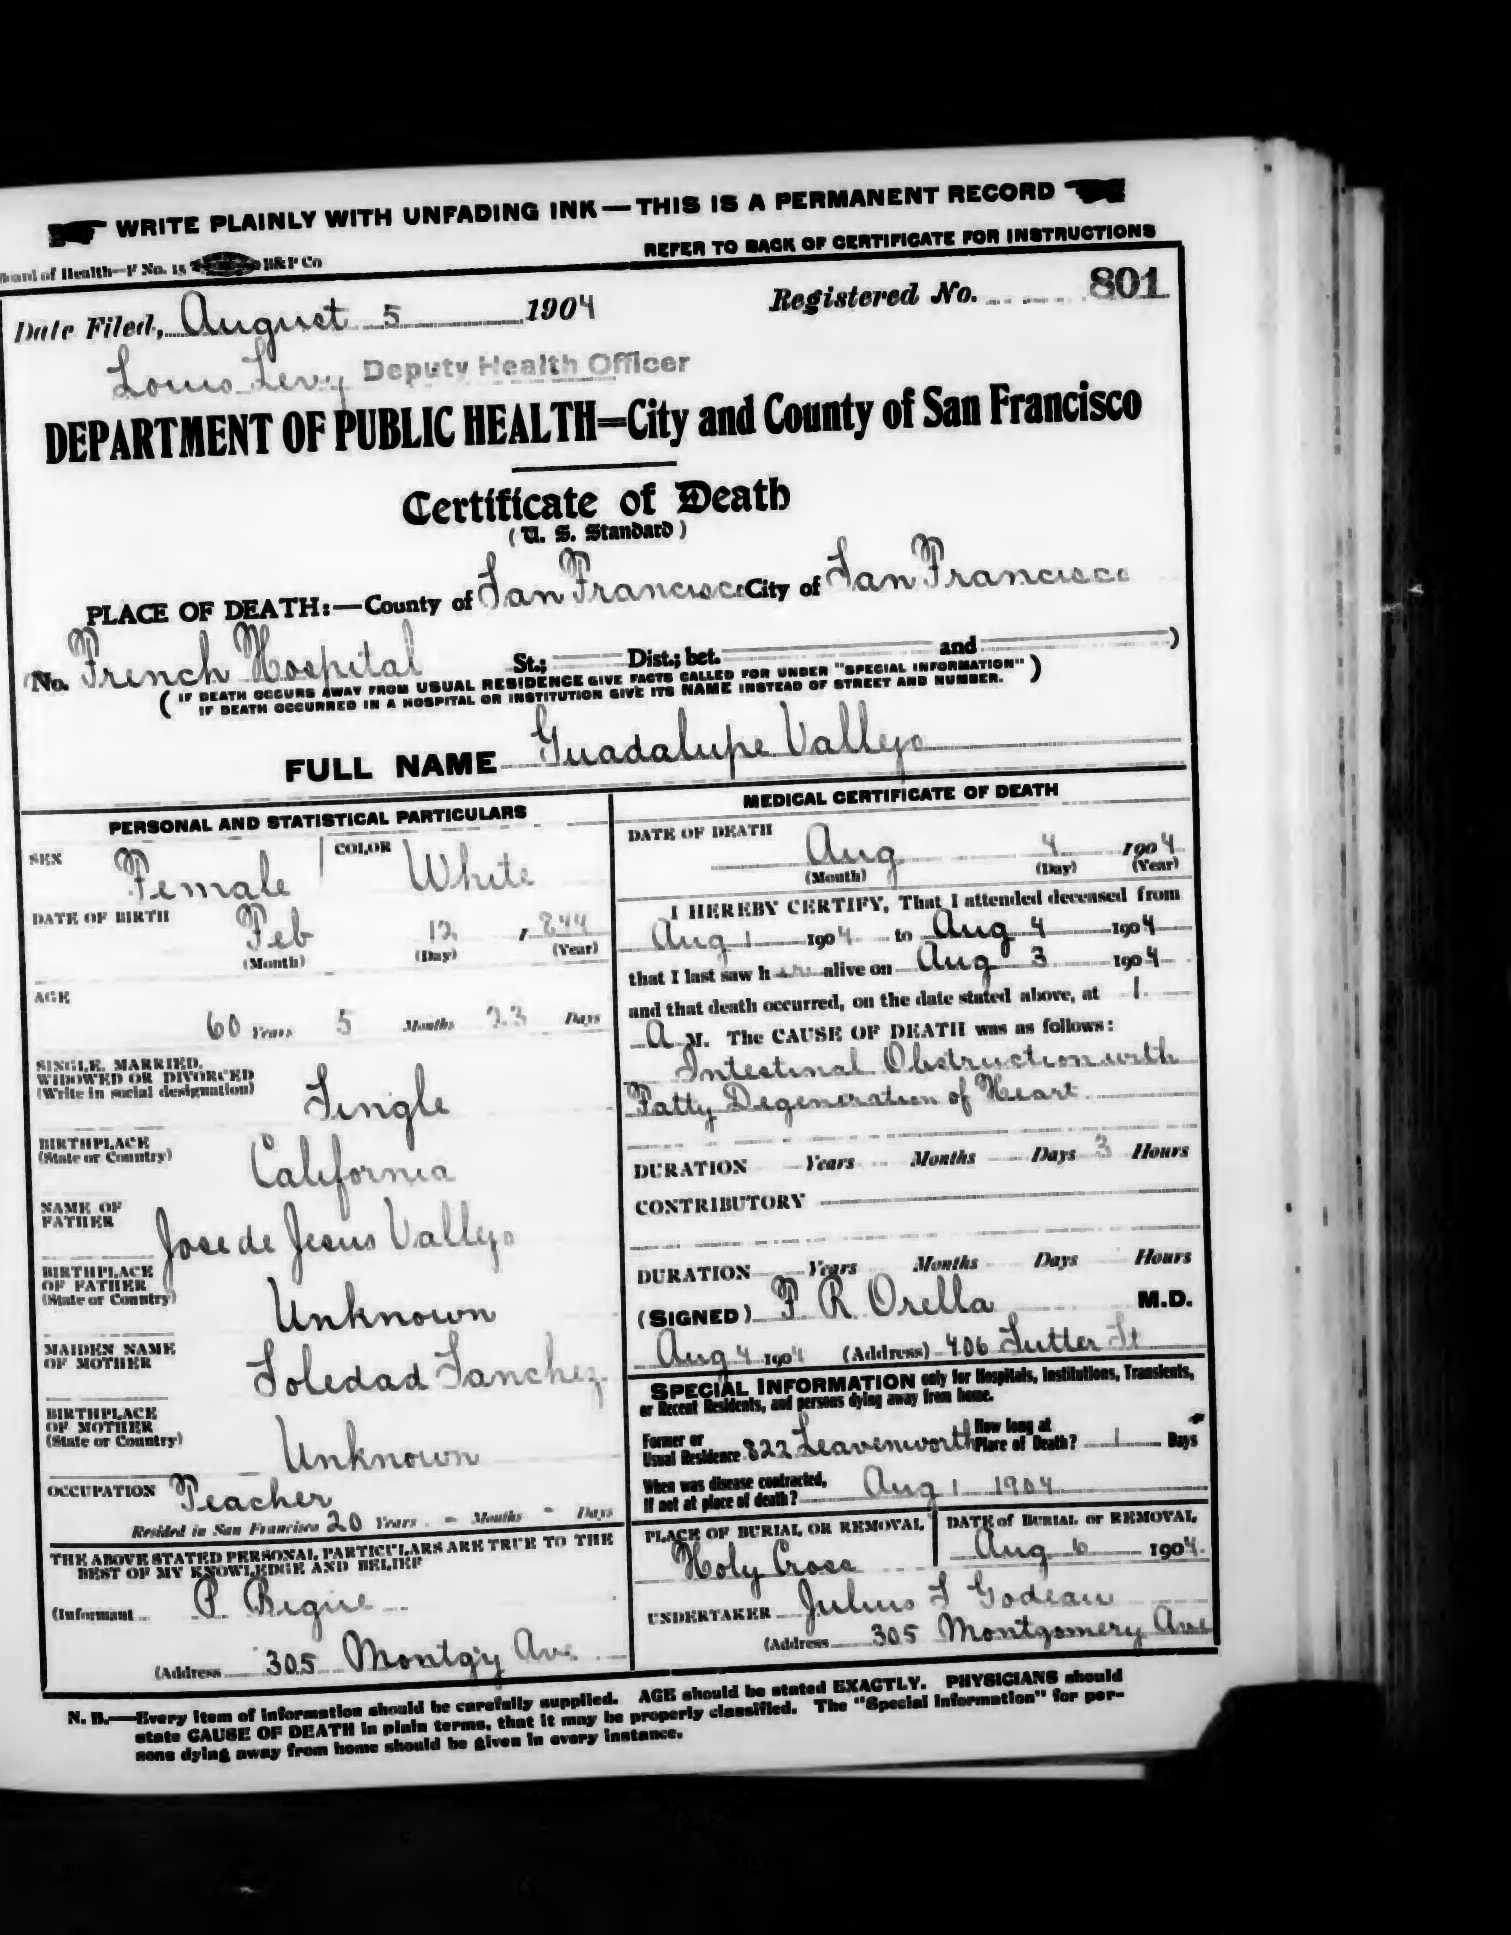 WRITE PLAINLY WITH UNFADING INK—THIS IS A PERMANENT RECORD
Board of Health—F No. 15 H&P Co
REFER TO BACK OF CERTIFICATE FOR INSTRUCTIONS
Date Filed, August 5 1904
Registered No. 801
Louis Levy Deputy Health Officer
DEPARTMENT OF PUBLIC HEALTH=City and County of San Francisco
Certificate of Death
(U. S. Standard)
PLACE OF DEATH:—County of San Francisco City of San Francisco
No. French Hospital St.; Dist.; bet. and )
( IF DEATH OCCURS AWAY FROM USUAL RESIDENCE GIVE FACTS CALLED FOR UNDER "SPECIAL INFORMATION" )
IF DEATH OCCURRED IN A HOSPITAL OR INSTITUTION GIVE ITS NAME INSTEAD OF STREET AND NUMBER.
FULL NAME Guadalupe Vallejo
PERSONAL AND STATISTICAL PARTICULARS
SEX Female COLOR White
DATE OF BIRTH Feb 12, 1844
(Month) (Day) (Year)
AGE
60 Years 5 Months 23 Days
SINGLE, MARRIED,
WIDOWED OR DIVORCED
(Write in social designation) Single
BIRTHPLACE
(State or Country) California
NAME OF
FATHER Jose de Jesus Vallejo
BIRTHPLACE
OF FATHER
(State or Country) Unknown
MAIDEN NAME
OF MOTHER Soledad Sanchez
BIRTHPLACE
OF MOTHER
(State or Country) Unknown
OCCUPATION Teacher
Resided in San Francisco 20 Years - Months - Days
THE ABOVE STATED PERSONAL PARTICULARS ARE TRUE TO THE
BEST OF MY KNOWLEDGE AND BELIEF
(Informant P. Bigue
(Address 305 Montg'y Ave
MEDICAL CERTIFICATE OF DEATH
DATE OF DEATH
Aug 4 1904
(Month) (Day) (Year)
I HEREBY CERTIFY, That I attended deceased from
Aug 1 1904 to Aug 4 1904
that I last saw her alive on Aug 3 1904
and that death occurred, on the date stated above, at 1.
A M. The CAUSE OF DEATH was as follows:
Intestinal Obstruction with
Fatty Degeneration of Heart
DURATION Years Months Days 3 Hours
CONTRIBUTORY
DURATION Years Months Days Hours
(SIGNED) F R Orella M.D.
Aug 4 1904 (Address) 406 Sutter St
SPECIAL INFORMATION only for Hospitals, Institutions, Transients,
or Recent Residents, and persons dying away from home.
Former or
Usual Residence 822 Leavenworth
How long at
Place of Death? 1 Days
When was disease contracted,
If not at place of death? Aug 1 1904
PLACE OF BURIAL OR REMOVAL
Holy Cross
DATE of BURIAL or REMOVAL
Aug 6 1904
UNDERTAKER Julius S Godeau
(Address 305 Montgomery Ave
N. B.—Every item of information should be carefully supplied. AGE should be stated EXACTLY. PHYSICIANS should
state CAUSE OF DEATH in plain terms, that it may be properly classified. The "Special Information" for per-
sons dying away from home should be given in every instance.